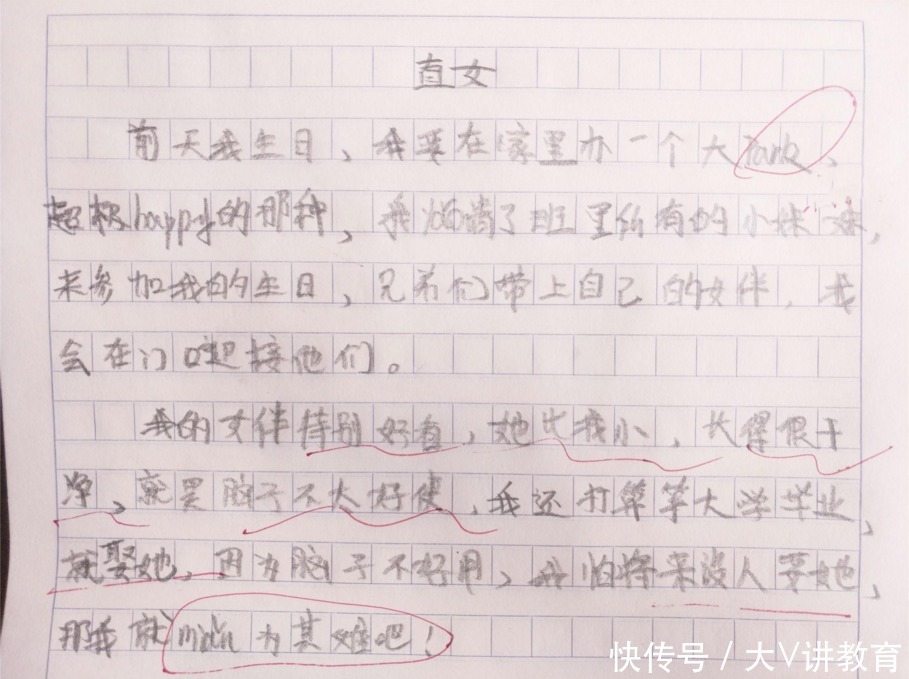 直女
前天我生日、我要在家里办一个大Park、
超极happy的那种、我邀请了班里所有的小妹妹,
来参加我的生日,兄弟们带上自己的女伴,我
会在门口迎接他们。
我的女伴特别好看,她比我小,长得很干
净、就是脑子不太好使,我还打算等大学毕业、
就娶她,因为脑子不好用、我怕将来没人要她,
那我就 为其难吧!
快传号 / 大V讲教育